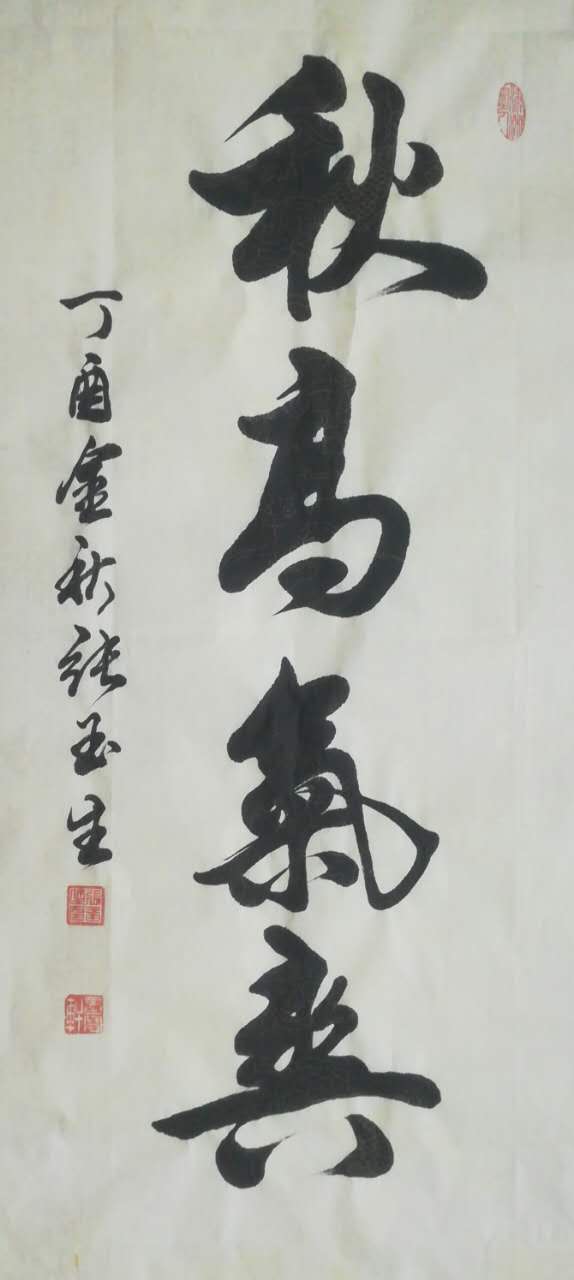 秋高氣爽
丁酉金秋張玉生